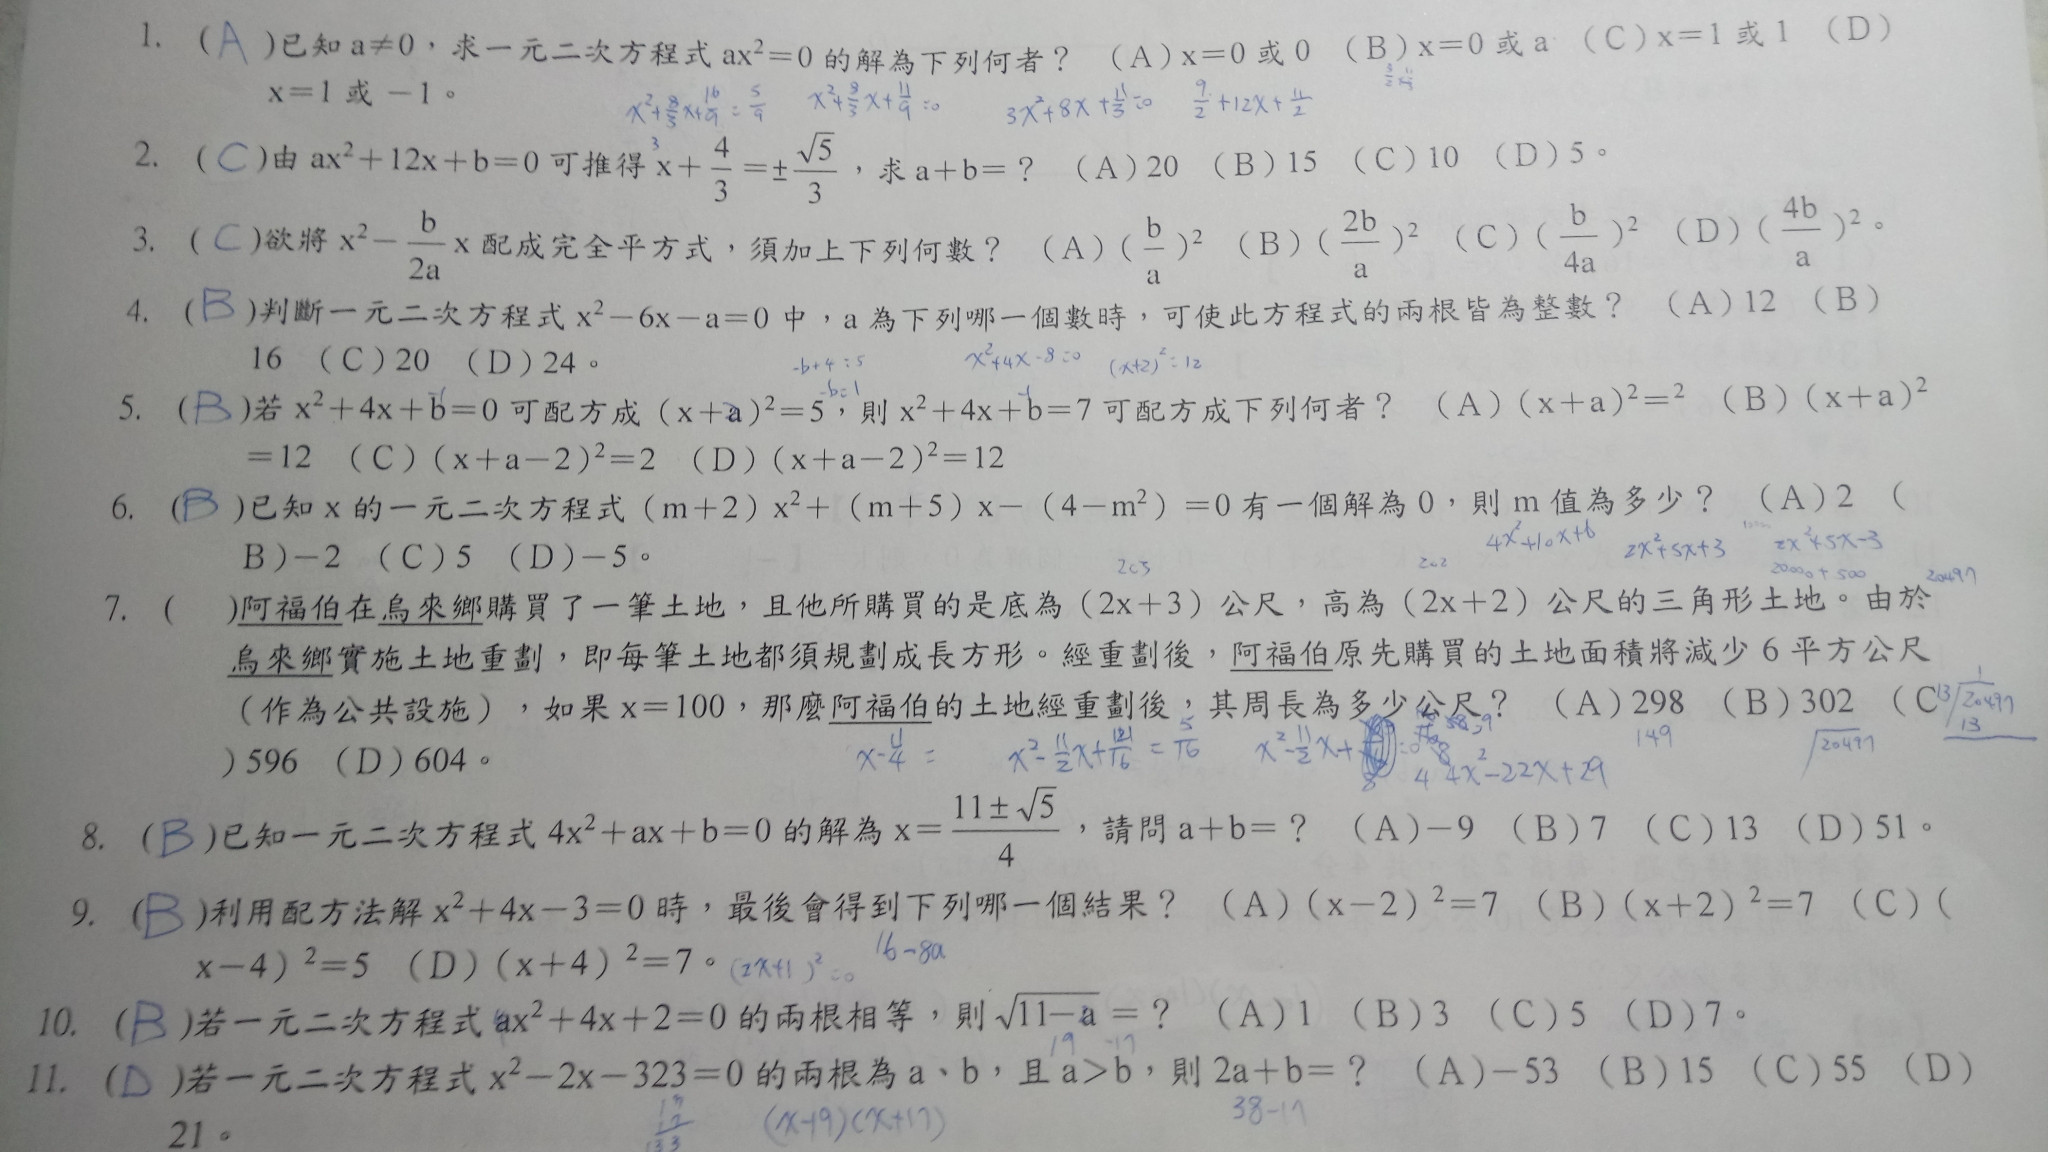 1. (A)已知 a≠0，求一元二次方程式 ax²=0 的解為下列何者？ (A)x=0 或 0 (B)x=0 或 a (C)x=1 或 1 (D)
x=1 或 -1。
x²+8/3x+16/9=5/9 x²+8/3x+11/9=0 3x²+8x+11/3=0 9/2+12x+11/2
2. (C)由 ax²+12x+b=0 可推得 x+4/3=±√5/3，求 a+b=？ (A)20 (B)15 (C)10 (D)5。
3. (C)欲將 x²-b/2a x 配成完全平方式，須加上下列何數？ (A)(b/a)² (B)(2b/a)² (C)(b/4a)² (D)(4b/a)²。
4. (B)判斷一元二次方程式 x²-6x-a=0 中，a 為下列哪一個數時，可使此方程式的兩根皆為整數？ (A)12 (B)
16 (C)20 (D)24。
-b+4=5 x²+4x-8=0 (x+2)²=12
-b=1
5. (B)若 x²+4x+b=0 可配方成 (x+a)²=5，則 x²+4x+b=7 可配方成下列何者？ (A)(x+a)²=² (B)(x+a)²
=12 (C)(x+a-2)²=2 (D)(x+a-2)²=12
6. (B)已知 x 的一元二次方程式(m+2)x²+(m+5)x-(4-m²)=0 有一個解為 0，則 m 值為多少？ (A)2 (
B)-2 (C)5 (D)-5。
4x²+10x+6 2x²+5x+3 2x²+5x-3
203 202 20000+500 20497
7. ( )阿福伯在烏來鄉購買了一筆土地，且他所購買的是底為(2x+3)公尺，高為(2x+2)公尺的三角形土地。由於
烏來鄉實施土地重劃，即每筆土地都須規劃成長方形。經重劃後，阿福伯原先購買的土地面積將減少 6 平方公尺
(作為公共設施)，如果 x=100，那麼阿福伯的土地經重劃後，其周長為多少公尺？ (A)298 (B)302 (C
13 20497
1
13
)596 (D)604。
149
20497
x-11/4= x²-11/2x+121/16=5/16 x²-11/2x+
4x²-22x+29
8. (B)已知一元二次方程式 4x²+ax+b=0 的解為 x=11±√5/4，請問 a+b=？ (A)-9 (B)7 (C)13 (D)51。
9. (B)利用配方法解 x²+4x-3=0 時，最後會得到下列哪一個結果？ (A)(x-2)²=7 (B)(x+2)²=7 (C)(
x-4)²=5 (D)(x+4)²=7。
(2x+1)²=0 16-8a
10. (B)若一元二次方程式 ax²+4x+2=0 的兩根相等，則√11-a=？ (A)1 (B)3 (C)5 (D)7。
19 -17
11. (D)若一元二次方程式 x²-2x-323=0 的兩根為 a、b，且 a>b，則 2a+b=？ (A)-53 (B)15 (C)55 (D)
21。
(x-19)(x+17) 38-17